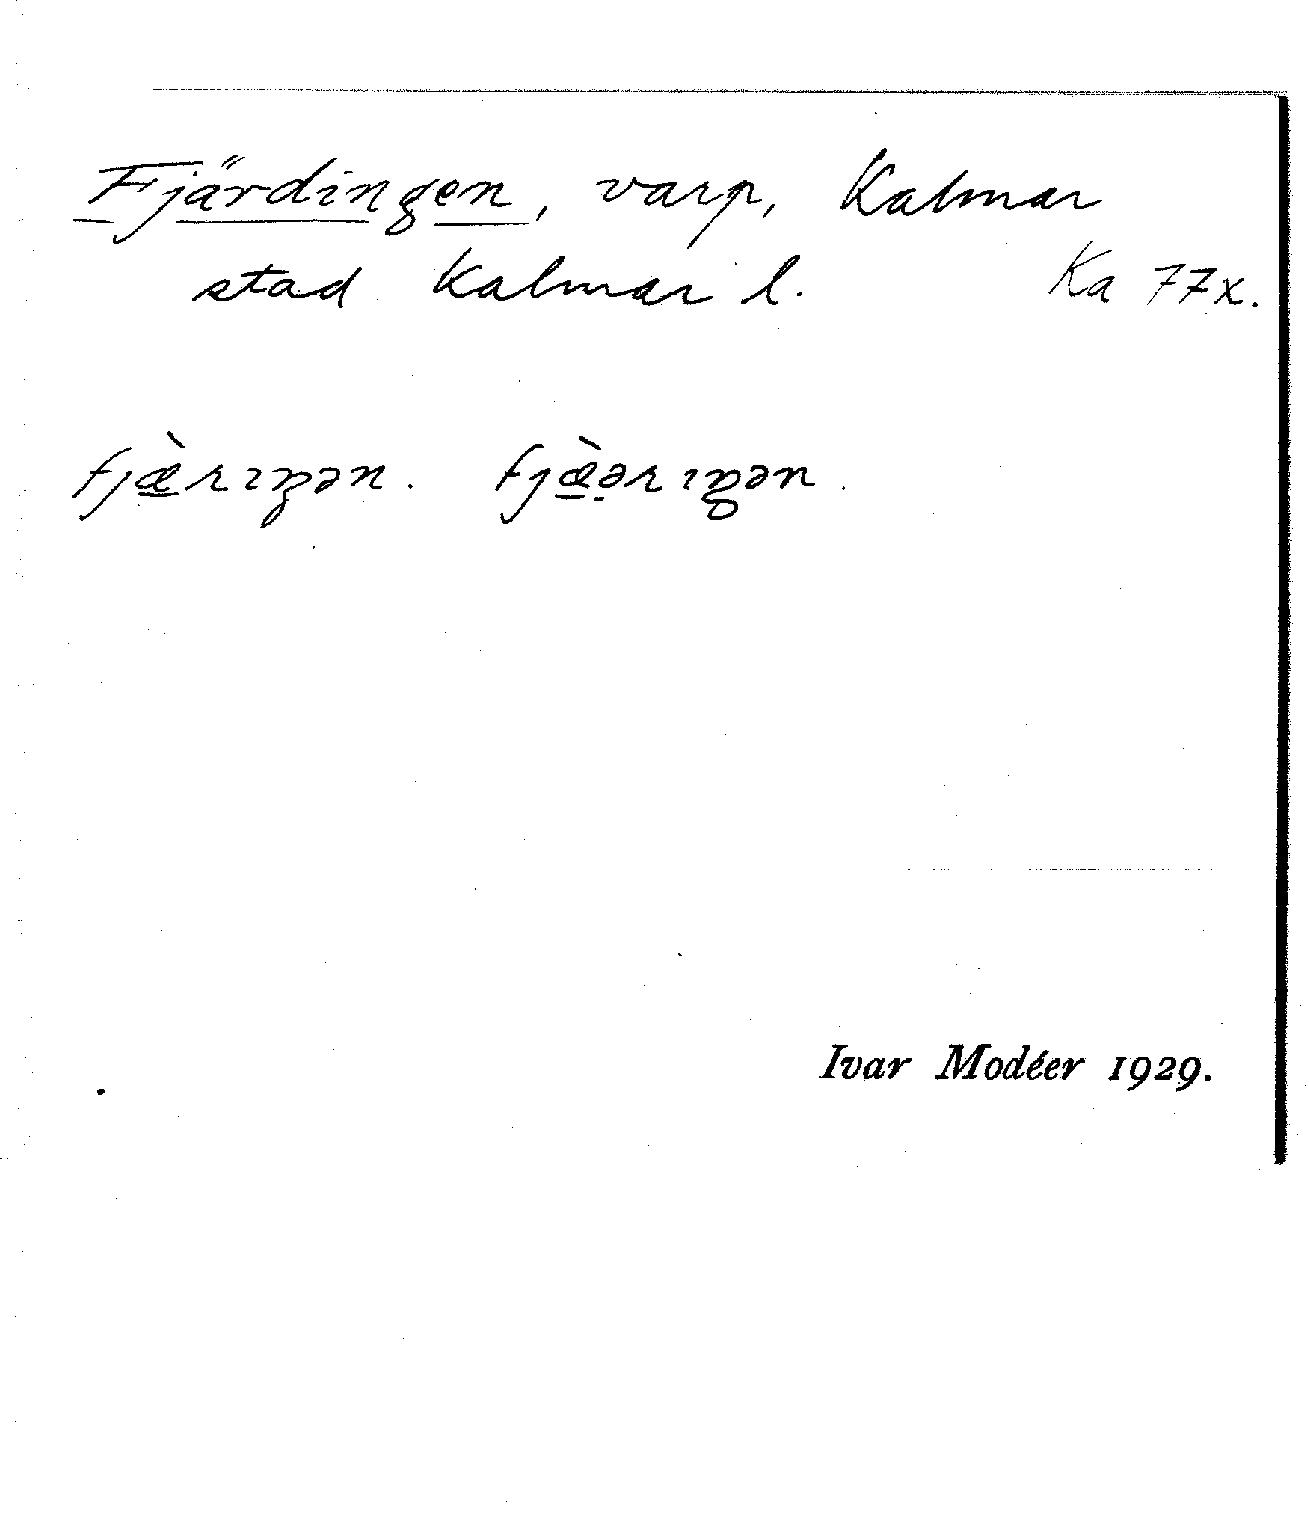 Fjärdingen, varp, Kalmar
stad Kalmar l. Ka 77x.
fjæ̲̀rɪŋən. fjæ̲̀ə̣rɪŋən.
Ivar Modéer 1929.